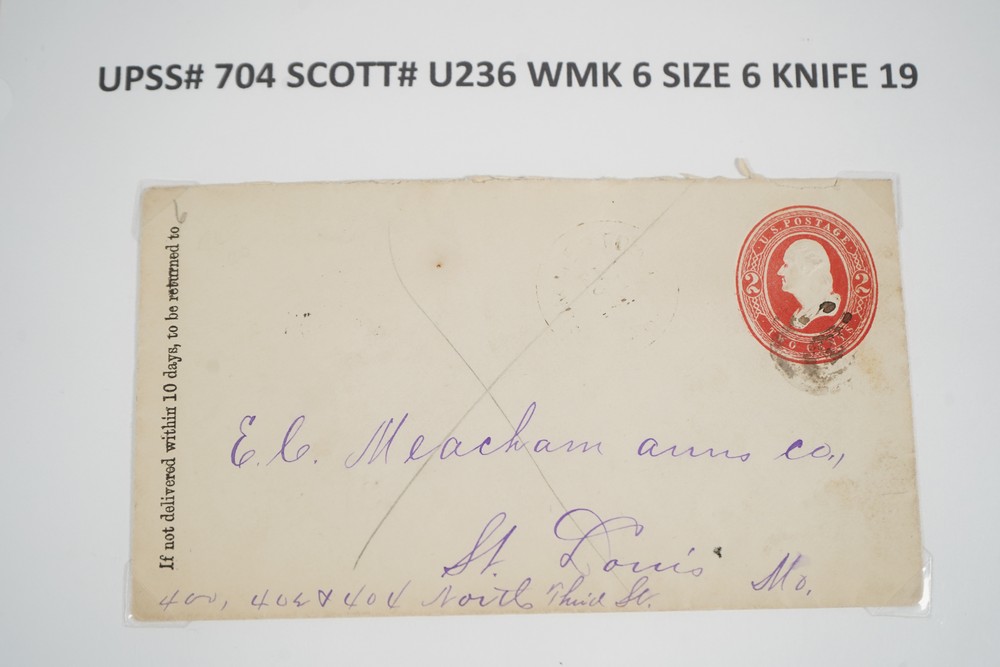 UPSS# 704 SCOTT# U236 WMK 6 SIZE 6 KNIFE 19
If not delivered within 10 days, to be returned to
U.S. POSTAGE
2 2
TWO CENTS
E. C. Meacham arms co.,
St. Louis Mo.
400, 402 & 404 North Third St.